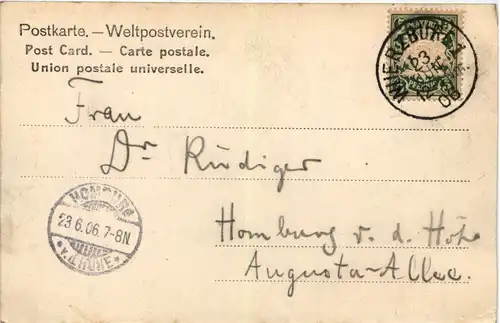 Postkarte. — Weltpostverein.
Post Card. — Carte postale.
Union postale universelle.
WUERZBURG 1.
23
JUN.
06
Frau
Dr Rüdiger
HOMBURG
23.6.06.7-8N
* v.d. HÖHE *
Homburg v. d. Höhe
Augusta-Allee.